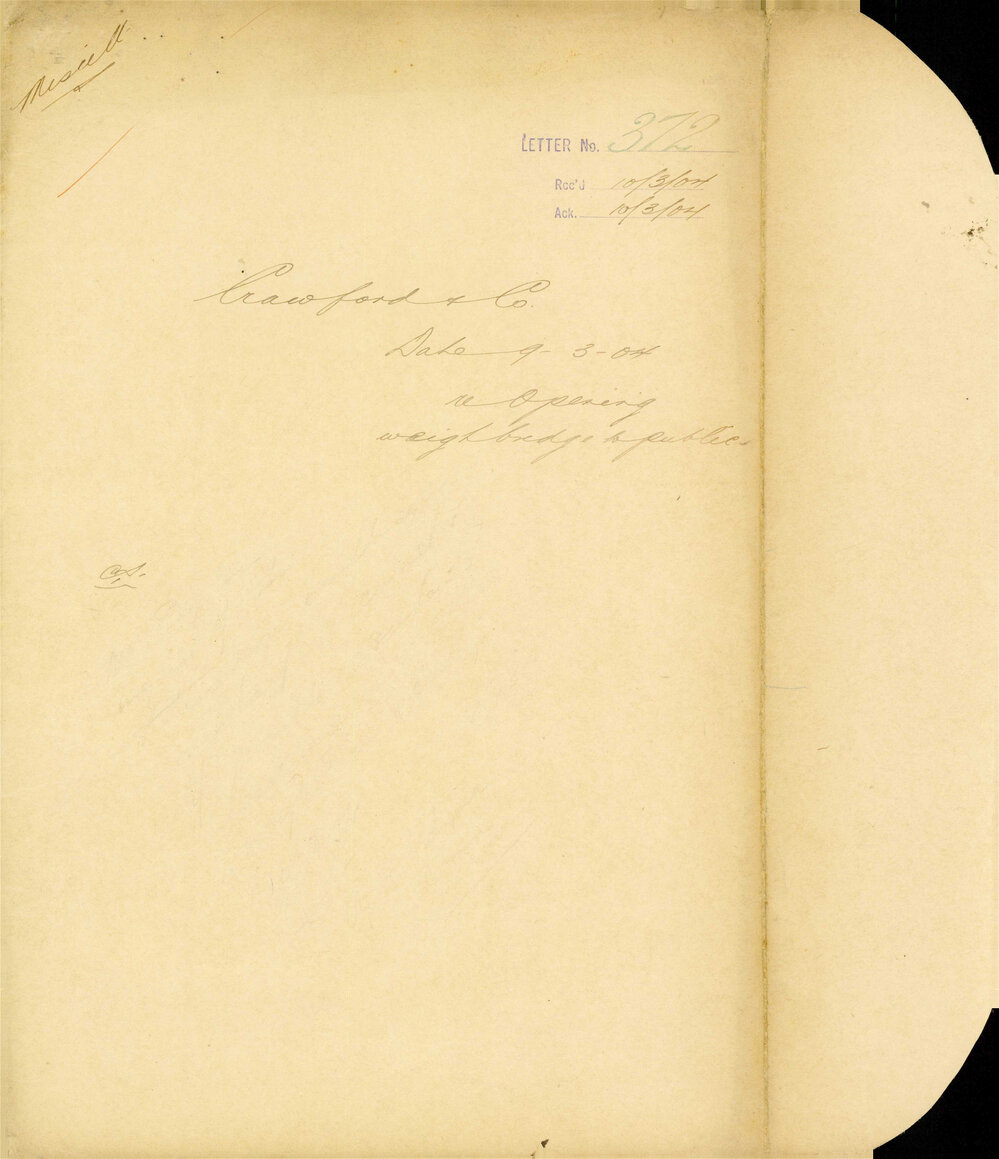 Miscell
LETTER No. 372
Rec'd 10/3/04
Ack. 10/3/04
Crawford & Co.
Date 9-3-04
re Opening
weighbridge to public